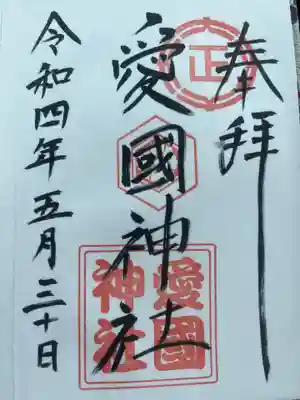 奉拝
正
愛國神社
愛國
神社
令和四年五月三十日